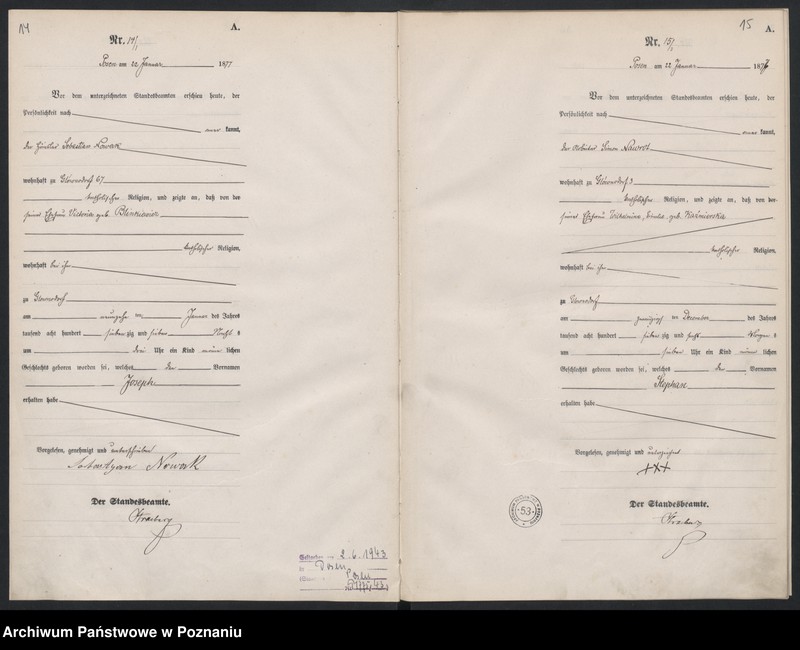 14
A.
Nr. 14/1
Posen am 22 Januar 1877
Vor dem unterzeichneten Standesbeamten erschien heute, der
Persönlichkeit nach
kannt,
der Häusler Sebastian Nowak
wohnhaft zu Glownerdorf 67
katholischer Religion, und zeigte an, daß von der
seiner Ehefrau Victoria geb.
katholischer Religion,
wohnhaft bei ihm
zu Glownerdorf
am neunzehn ten Januar des Jahres
tausend acht hundert sieben zig und sieben Nachts
um drei Uhr ein Kind männ lichen
Geschlechts geboren worden sei, welches den Vornamen
Joseph
erhalten habe
Vorgelesen, genehmigt und unterschrieben
Nowak
Der Standesbeamte.
Gestorben 2.6.1943
in Posen
Posen
15
A.
Nr. 15/1
Posen am 22 Januar 1877
Vor dem unterzeichneten Standesbeamten erschien heute, der
Persönlichkeit nach
kannt,
der Arbeiter Simon Nawrot
wohnhaft zu Glownerdorf 3
katholischer Religion, und zeigte an, daß von der
seiner Ehefrau geb.
katholischer Religion,
wohnhaft bei ihm
zu Glownerdorf
am zwanzigsten December des Jahres
tausend acht hundert sieben zig und sechs
um sieben Uhr ein Kind männ lichen
Geschlechts geboren worden sei, welches den Vornamen
Stephan
erhalten habe
Vorgelesen, genehmigt und
+++
Der Standesbeamte.
53
Archiwum Państwowe w Poznaniu